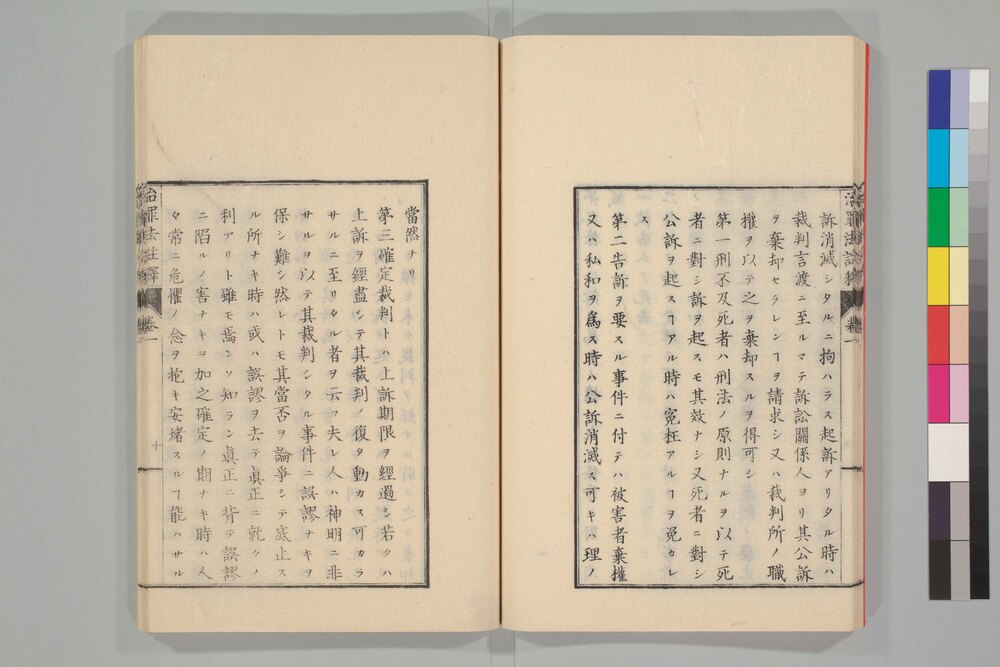 治罪法註釋 卷一
訴消滅シタルニ拘ハラス起訴アリタル時ハ
裁判言渡ニ至ルマテ訴訟關係人ヨリ其公訴
ヲ棄却セラレンヿヲ請求シ又ハ裁判所ノ職
權ヲ以テ之ヲ棄却スルヲ得可シ
第一刑不及死者ハ刑法ノ原則ナルヲ以テ死
者ニ對シ訴ヲ起スモ其效ナシ又死者ニ對シ
公訴ヲ起スヿアル時ハ寃枉アルヿヲ免カレ
ス
第二告訴ヲ要スル事件ニ付テハ被害者棄權
又ハ私和ヲ爲ス時ハ公訴消滅ス可キハ理ノ
當然ナリ
第三確定裁判トハ上訴期限ヲ經過シ若クハ
上訴ヲ經盡シテ其裁判ノ復タ動カス可カラ
サルニ至リタル者ヲ云フ夫レ人ハ神明ニ非
サルヲ以テ其裁判シタル事件ニ誤謬ナキヲ
保シ難シ然レトモ其當否ヲ論爭シテ底止ス
ル所ナキ時ハ或ハ誤謬ヲ去テ眞正ニ就クノ
利アリト雖モ焉ンソ知ラン眞正ニ背テ誤謬
ニ陷ルノ害ナキヲ加之確定ノ期ナキ時ハ人
々常ニ危懼ノ念ヲ抱キ安堵スルヿ能ハサル
治罪法註釋 卷一 十